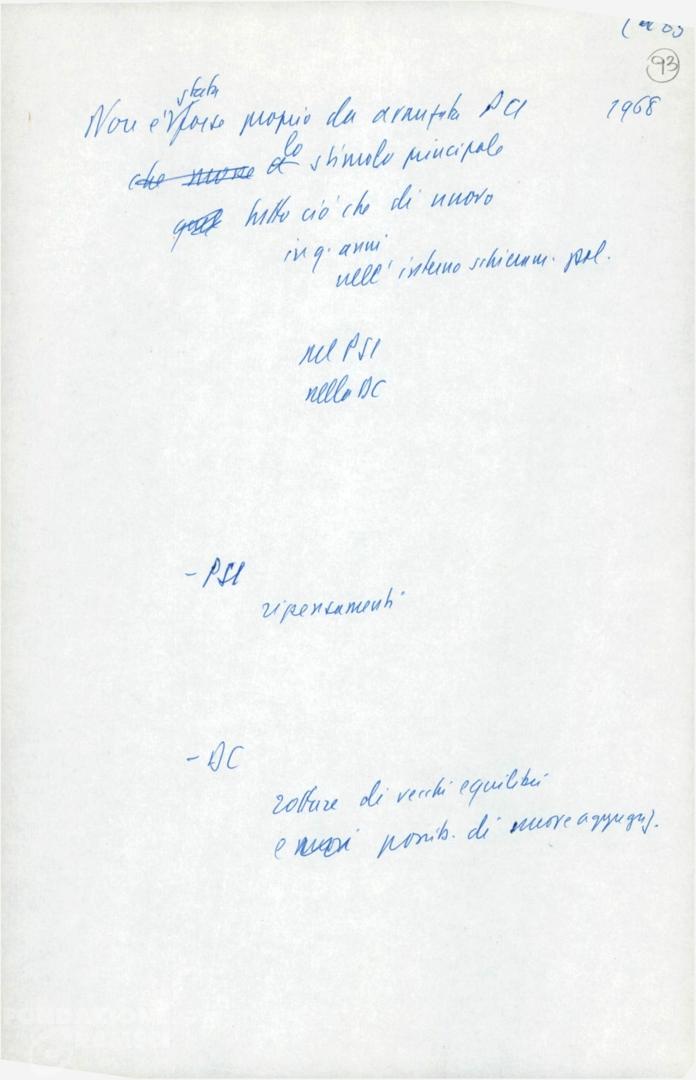 93
stata
Non è forse proprio da avanzata PCI 1968
che muove a lo stimolo principale
tutto ciò che di nuovo
in q. anni
nell'interno schieram. pol.
nel PSI
nella DC
- PSI
ripensamenti
- DC
rotture di vecchi equilibri
e possib. di nuove aggregaz.